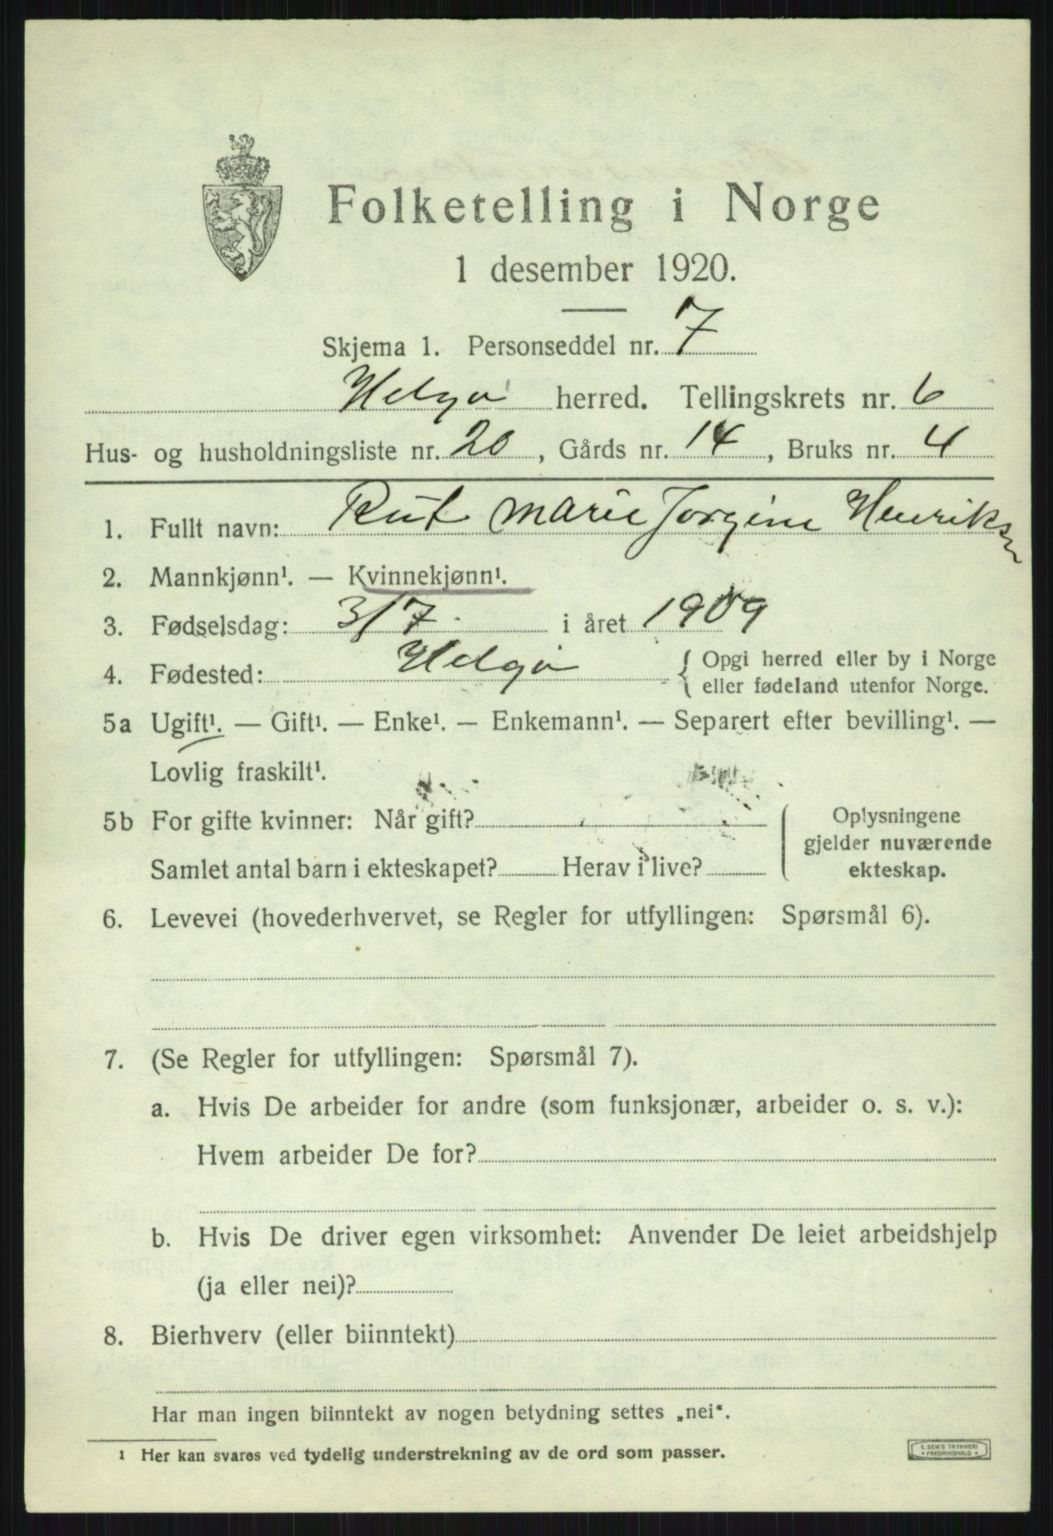 Folketelling i Norge
1 desember 1920.
Skjema 1. Personseddel nr. 7
Helgø herred. Tellingskrets nr. 6
Hus- og husholdningsliste nr. 20, Gårds nr. 14, Bruks nr. 4
1. Fullt navn: Rut Marie Jørgine Henriksen
2. Mannkjønn¹. — Kvinnekjønn¹.
3. Fødselsdag: 3/7. i året 1909
4. Fødested: Helgø { Opgi herred eller by i Norge
eller fødeland utenfor Norge.
5a Ugift¹. — Gift¹. — Enke¹. — Enkemann¹. — Separert efter bevilling¹. —
Lovlig fraskilt¹.
5b For gifte kvinner: Når gift?
Samlet antal barn i ekteskapet? Herav i live?
Oplysningene
gjelder nuværende
ekteskap.
6. Levevei (hovederhvervet, se Regler for utfyllingen: Spørsmål 6).
7. (Se Regler for utfyllingen: Spørsmål 7).
a. Hvis De arbeider for andre (som funksjonær, arbeider o. s. v.):
Hvem arbeider De for?
b. Hvis De driver egen virksomhet: Anvender De leiet arbeidshjelp
(ja eller nei)?
8. Bierhverv (eller biinntekt)
Har man ingen biinntekt av nogen betydning settes „nei“.
¹ Her kan svares ved tydelig understrekning av de ord som passer.
E. SEM'S TRYKKERI
• FREDRIKSHALD •